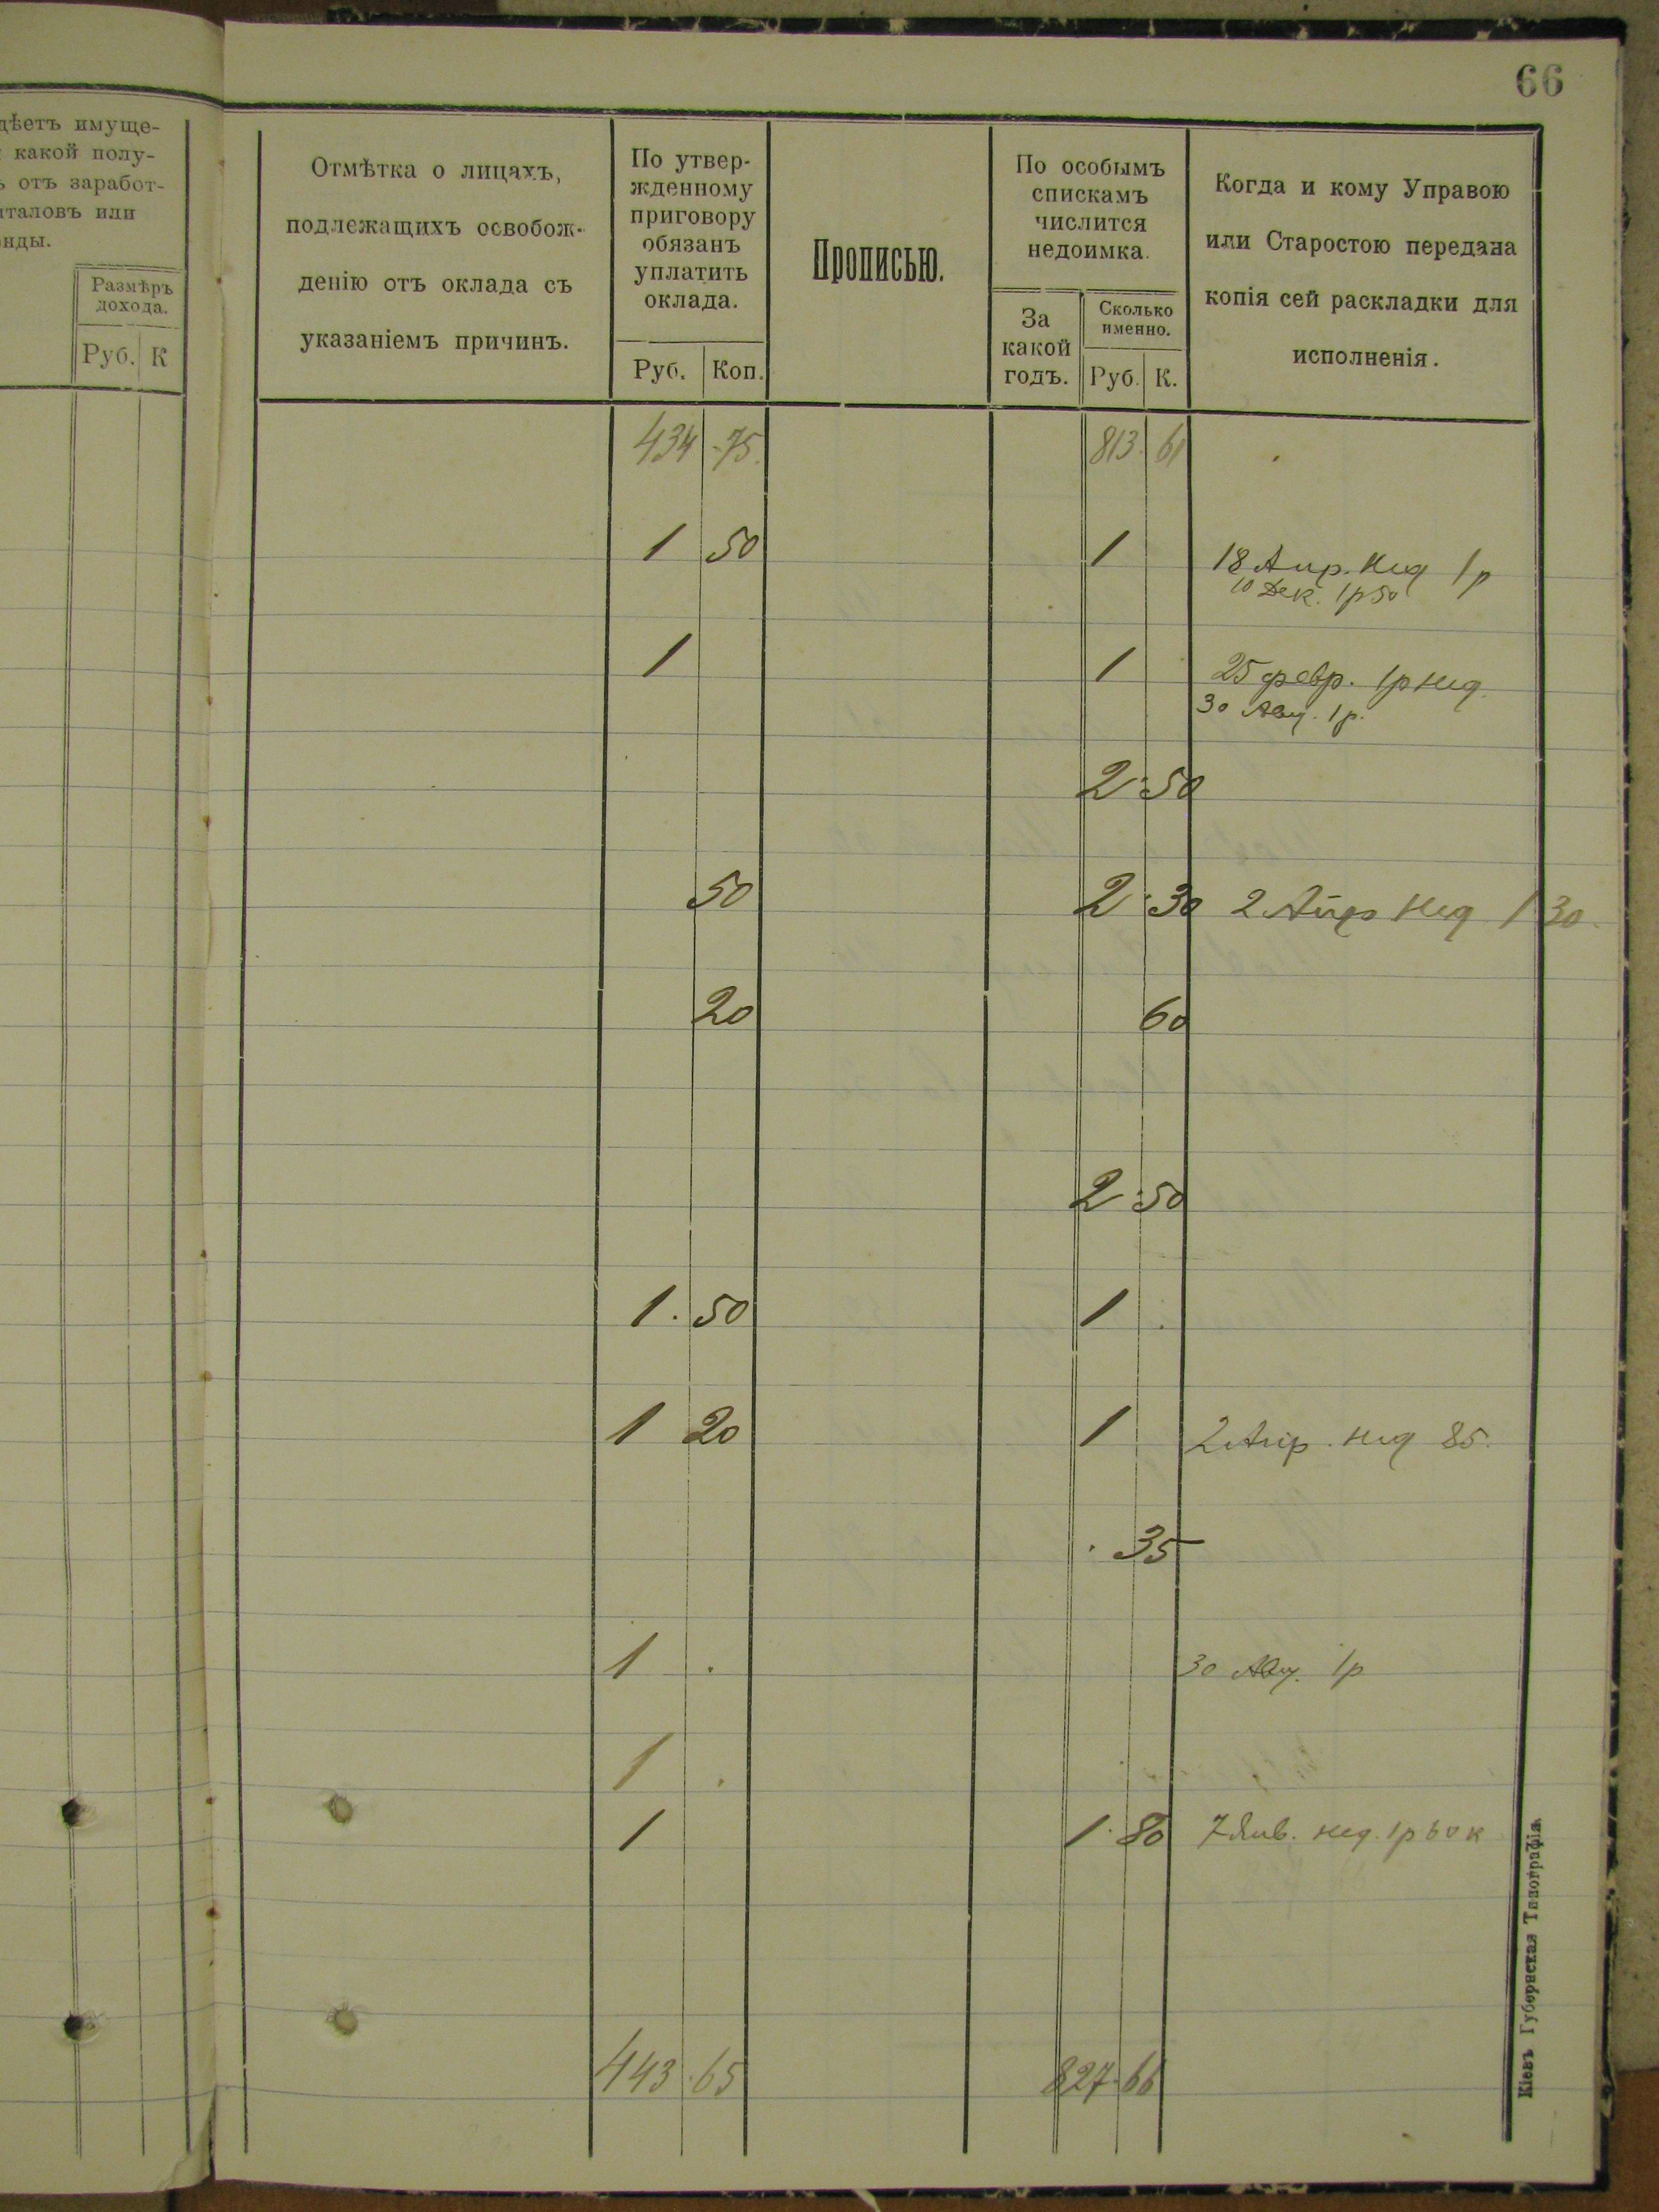 66
дѣетъ имуще-
какой полу-
ъ отъ заработ-
италовъ или
нды.
Размѣръ
дохода.
Руб. К
Отмѣтка о лицахъ,
подлежащихъ освобож-
денію отъ оклада съ
указаніемъ причинъ.
По утвер-
жденному
приговору
обязанъ
уплатить
оклада.
Руб. Коп.
Прописью.
По особымъ
спискамъ
числится
недоимка.
За
какой
годъ.
Сколько
именно.
Руб. К.
Когда и кому Управою
или Старостою передана
копія сей раскладки для
исполненія.
434 75 813 61
1 50 1 18 Апр. нед 1р
10 Дек. 1р 50
1 1 25 февр. 1р нед.
30 Авг. 1р.
2 50
50 2 30 2 Апр нед 1 30
20 60
2 50
1. 50 1
1 20 1 2 Апр. нед 85.
35
1 30 Авг. 1р
1
1 1. 80 7 Янв. нед. 1р 60 к
443 65 827 66
Кіевъ Губернская Типографія.